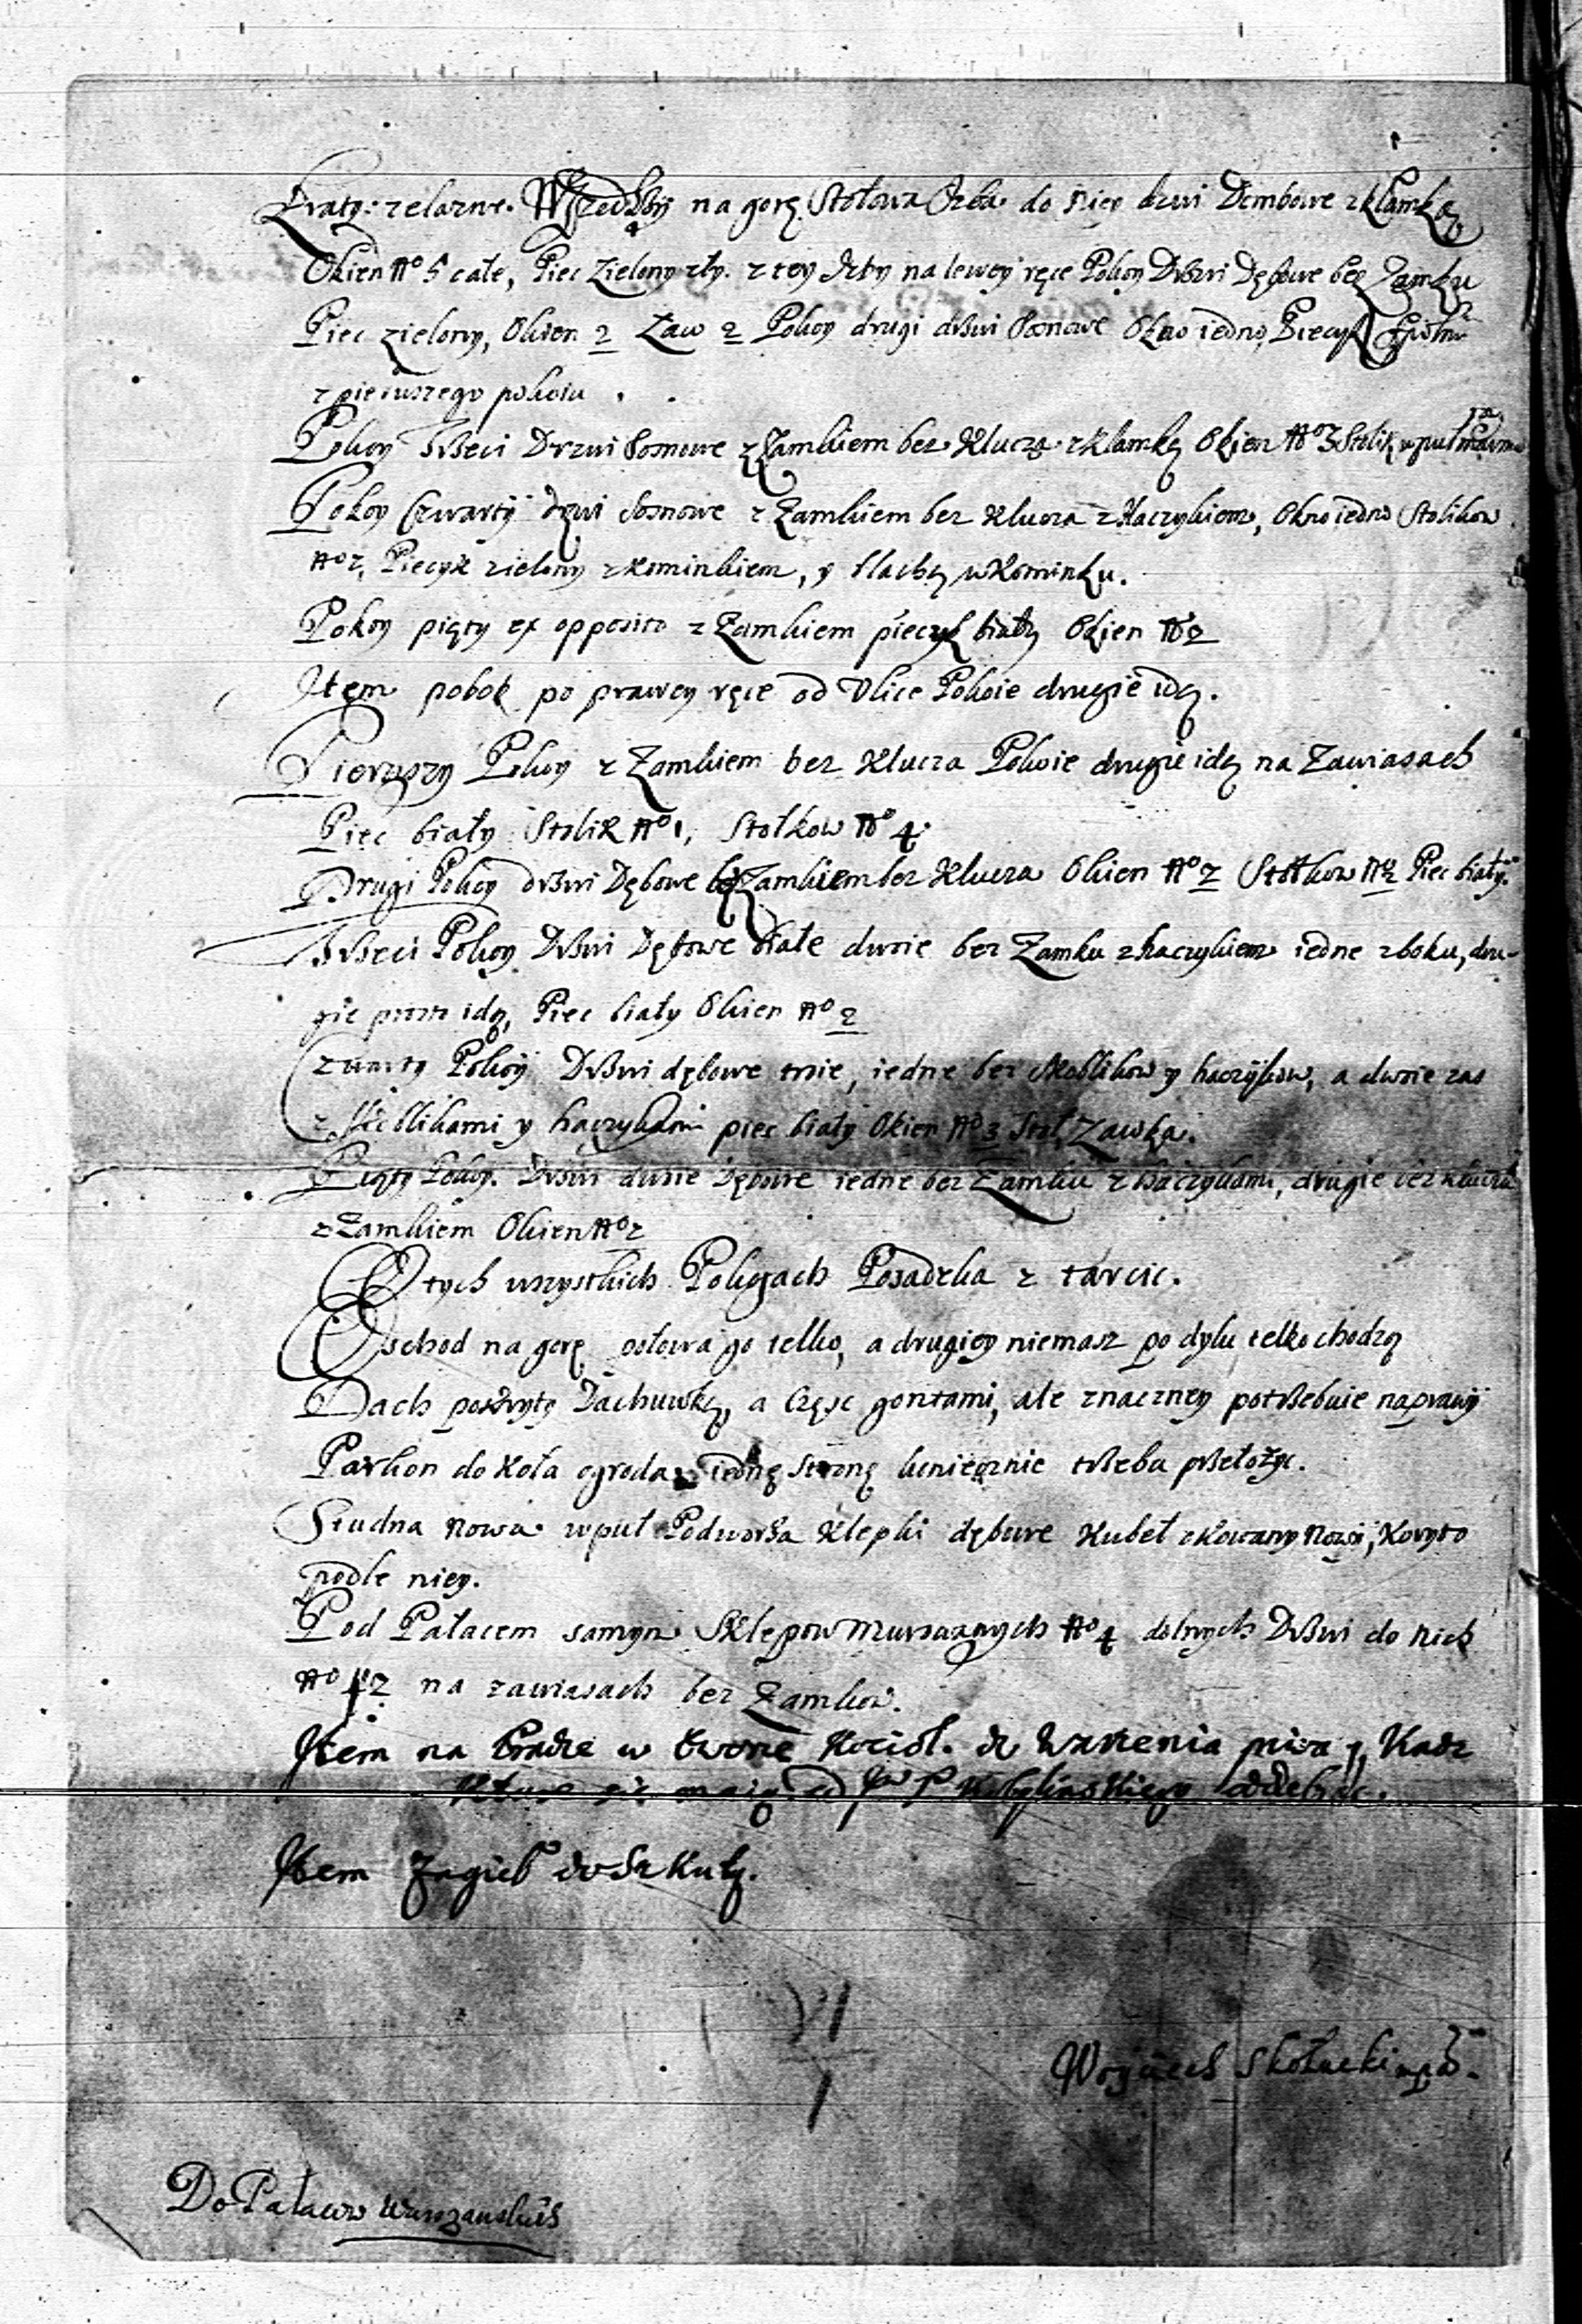 Kraty: zelazne. Wszedszy na gorę Stołowa Izba do niey drzwi Dembowe z klamką
Okien No 5 całe, Piec Zielony zły. z tey Izby na lewey ręce Pokoy Drzwi Dębowe bez Zamku
Piec zielony, Okien 2 Ław 2 Pokoy drugi drzwi Sosnowe Okno iedno, Piecyk
z pierwszego pokoiu.
Pokoy Trzeci Drzwi Sosnowe z Zamkiem bez Klucza z klamką Okien No 3 Stolik wpuł
Pokoy Czwarty drzwi Sosnowe z Zamkiem bez Klucza z Haczykiem, Okno iedno Stolikow
No 2, Piecyk zielony z kominkiem, y blachą w Kominku.
Pokoy piąty ex opposito z Zamkiem piecyk biały Okien No 2
Item pobok po prawey ręce od Ulice Pokoie drugie idą.
Pierwszy Pokoy z Zamkiem bez Klucza Pokoie drugie idą na Zawiasach
Piec biały Stolik No 1, Stołkow No 4.
Drugi Pokoy drzwi Dębowe Zamkiem bez Klucza Okien No 2 Stołkow No 2 Piec biały.
Trzeci Pokoy Drzwi Dębowe białe dwoie bez Zamku z haczykiem iedne z boku, dru-
gie prosto idą, Piec biały Okien No 2
Czwarty Pokoy Drzwi dębowe troie, iedne bez Skoblikow y haczykow, a dwoie zas
z Skoblikami y haczykami piec biały Okien No 3 Stoł Ławka.
Piąty Pokoy. Drzwi dwoie Dębowe iedne bez Zamku z haczykami, drugie bez klucza
z Zamkiem Okien No 2
W tych wszystkich Pokoiach Posadzka z tarcic.
Wschod na gorę połowa go telko, a drugiey niemasz po dylu telko chodzą
Dach pokryty Dachuwką, a Część gontami, ale znaczney potrzebuie naprawy
Parkon do Koła ogroda iednę stronę koniecznie trzeba przełożyc.
Studna nowa wpuł Podworza Klepki dębowe Kubeł okowany Nowy, Koryto
podle niey.
Pod Pałacem samym Sklepow Murowanych No 4 dolnych Drzwi do nich
No 2 na zawiasach bez Zamkow.
Item na Pradze w Dworze Kocioł do Warzenia piwa y Kadz
Ktore się maią od Jw P Kobylinskiego odebrac.
Item Zagiel do Szkuty.
Wojciech Skołucki mpr.
Do Pałacow Warszawskich